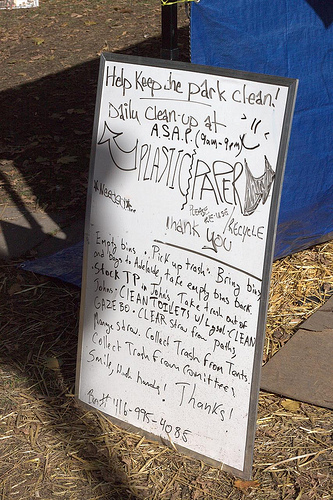 Help Keep the park clean!
Daily Clean-up at
A.S.A.P. (9am-9pm)
PLASTIC PAPER
PLEASE RE-USE / RECYCLE
*Needed:
Thank you
Empty bins. Pick up trash. Bring bins
and bags to Adelaide. Take empty bins back.
Stock TP in Johns. Take trash out of
Johns. CLEAN TOILETS w/ Lysol. CLEAN
GAZEBO. CLEAR straw from paths,
Mange straw. Collect Trash from Tents.
Collect Trash from comittees
Smile, Thanks!
416-995-4085